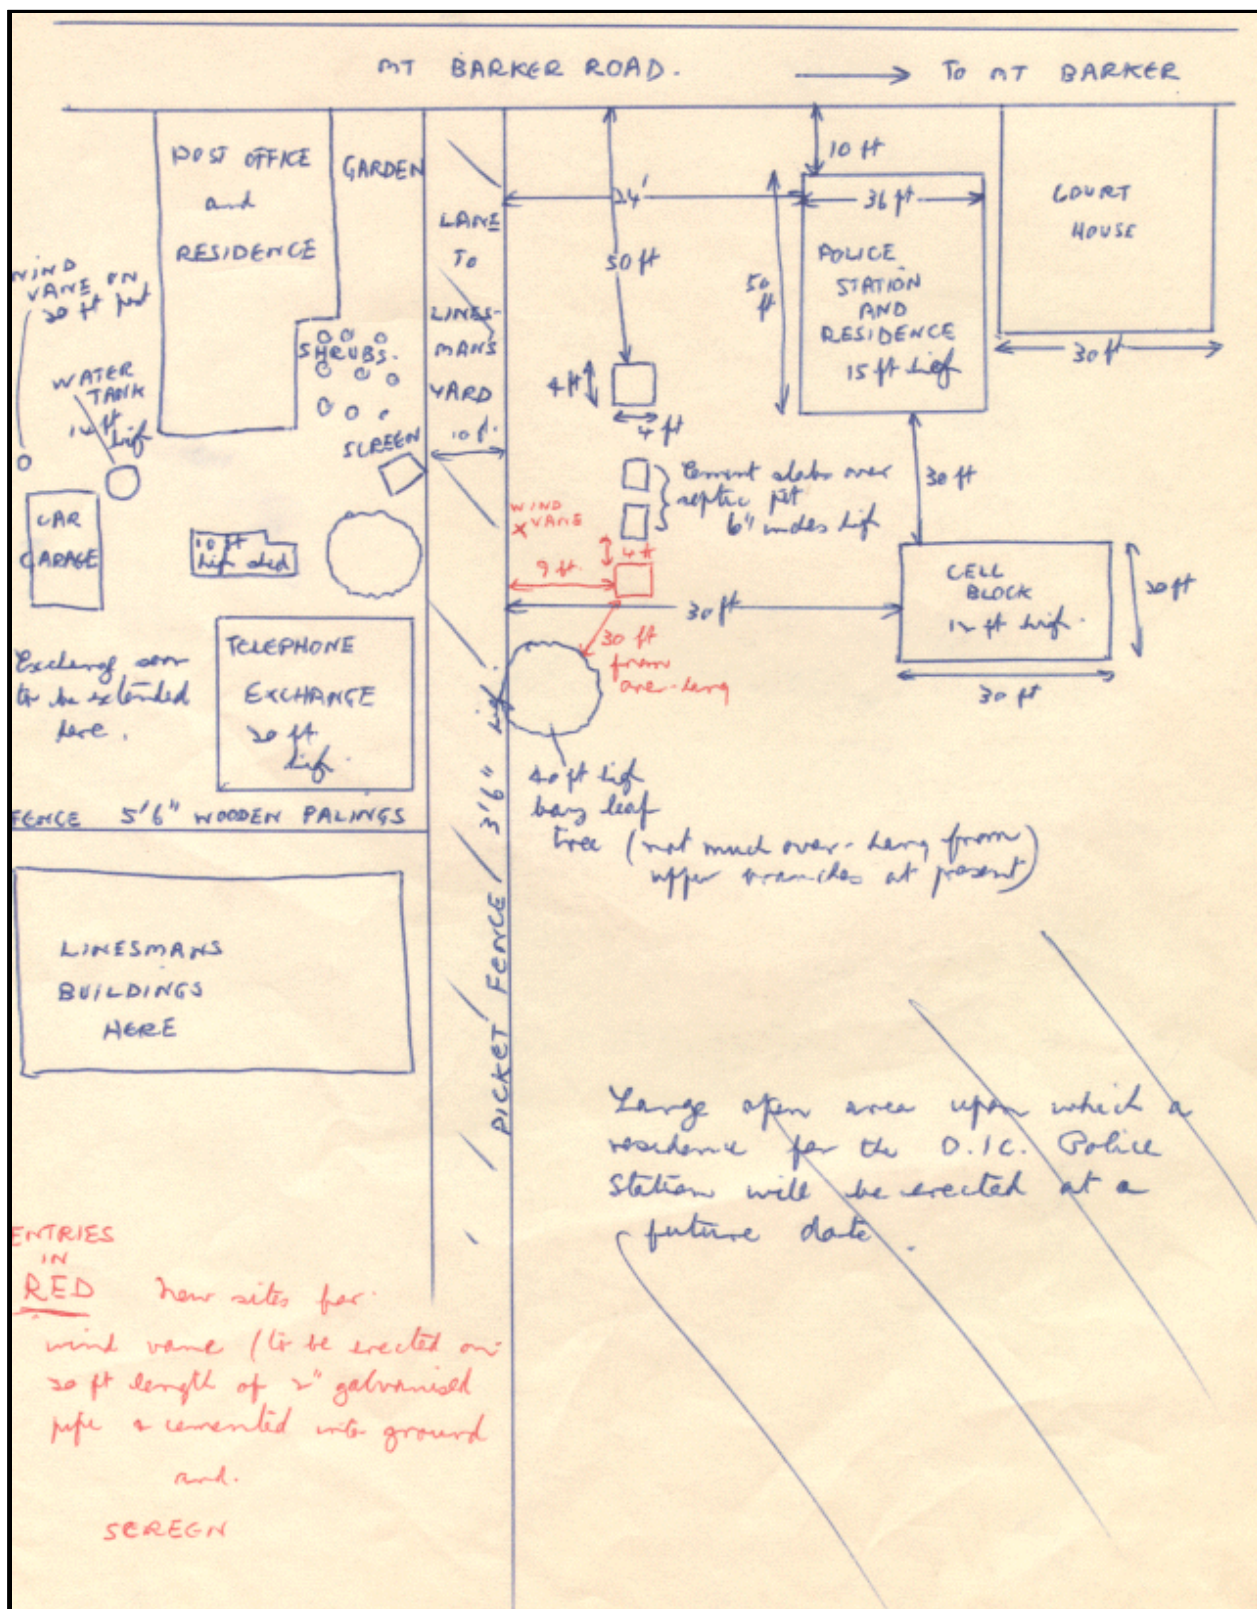 MT BARKER ROAD. → TO MT BARKER
POST OFFICE
and
RESIDENCE
GARDEN
LANE
TO
LINES-
MANS
YARD
10 ft.
WIND
VANE ON
20 ft post
WATER
TANK
12 ft
high
SHRUBS.
SCREEN
CAR
GARAGE
10 ft
high shed
TELEPHONE
EXCHANGE
20 ft
high.
Exchange
to be extended
here.
FENCE 5'6" WOODEN PALINGS
LINESMANS
BUILDINGS
HERE
PICKET FENCE 3'6" high.
24'
50 ft
10 ft
36 ft
50
ft
POLICE
STATION
AND
RESIDENCE
15 ft high
COURT
HOUSE
30 ft
4 ft
4 ft
Cement slabs over
septic pit
6" inches high
30 ft
WIND
X VANE
4 ft
9 ft.
30 ft
30 ft
from
over-hang
CELL
BLOCK
12 ft high.
20 ft
30 ft
40 ft high
bay leaf
tree (not much over-hang from
upper branches at present)
Large open area upon which a
residence for the O.I.C. Police
Station will be erected at a
future date.
ENTRIES
IN
RED New sites for
wind vane (to be erected on
20 ft length of 2" galvanised
pipe & cemented into ground
and.
SCREEN